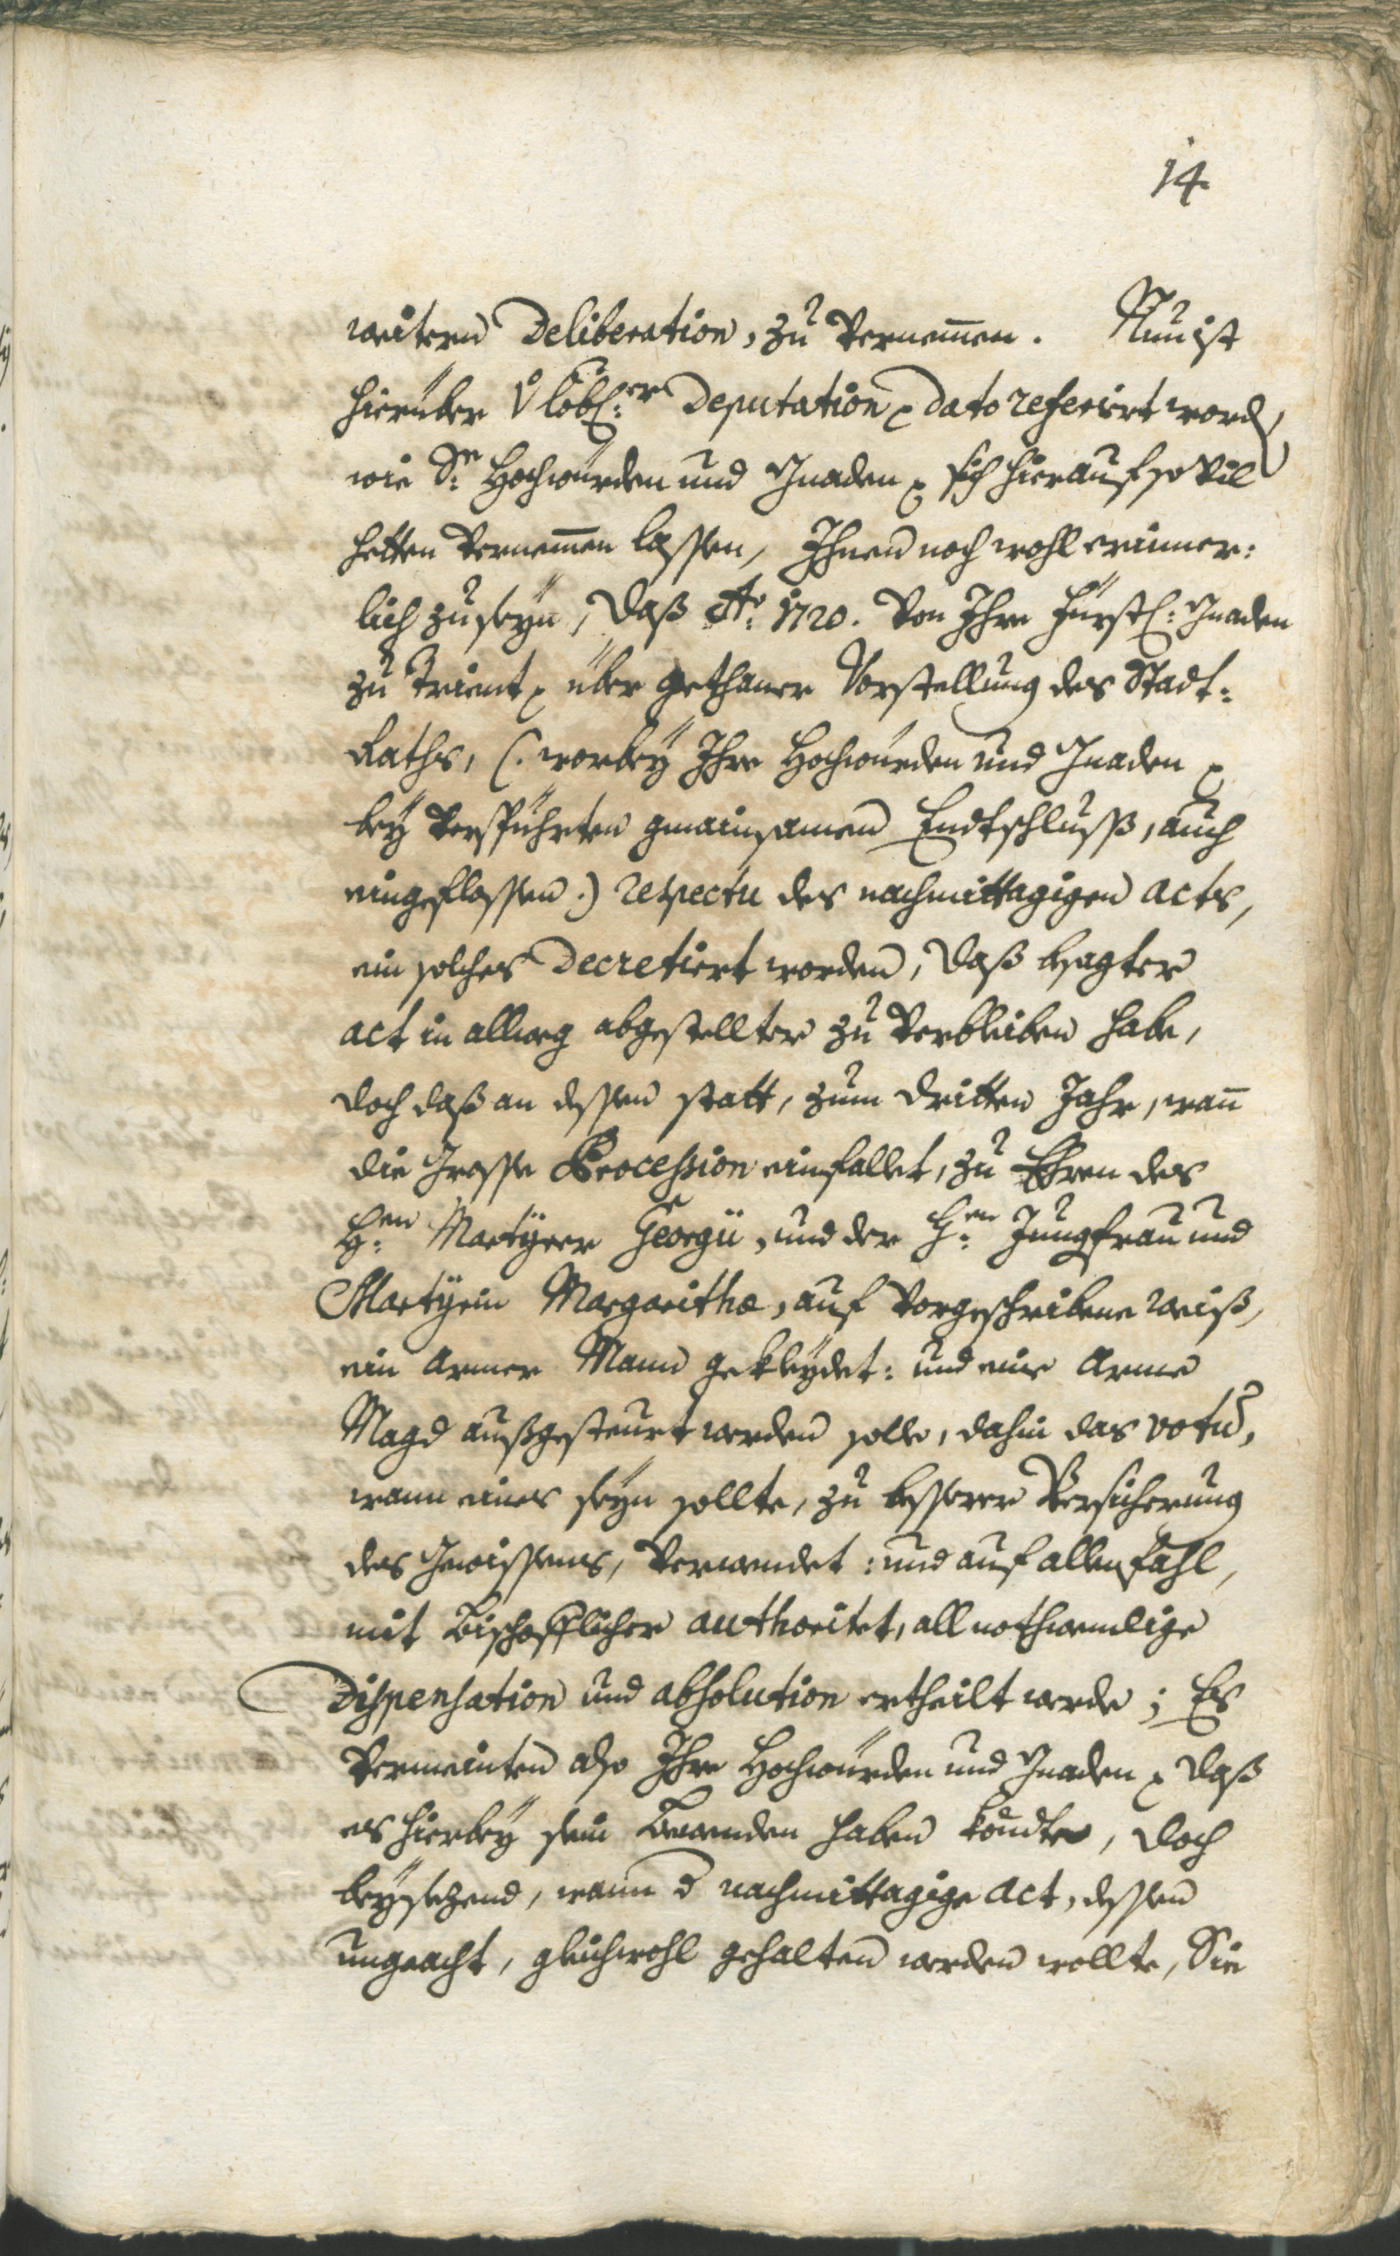 14.
weitern Deliberation, zu Vernemmen. Nun ist
hierüber V löbl:er Deputation, dato referirt word,
wie Sr: Hochwürden und Gnaden, sich hierauf so Vil
hetten Vernemmen lassen, Ihnen noch wohl erinner:
lich zu seyn, daß Ao: 1720. Von Ihro Fürstl: Gnaden
zu Trient, über gethaner Vorstellung des Stadt:
Raths, (: worbeÿ Ihro Hochwürden und Gnaden,
beÿ Verspührten gmainsamen Endtschluss, auch
eingeflossen :) respectu des nachmittagigen acts,
ein solches Decretiert worden, daß besagter
act in allweg abgestellter zu Verbleiben habe,
doch daß an dessen statt, zum dritten Jahr, wañ
die Grosse Procession einfallet, zu Ehren des
H:en Martÿrer Georgii, und der H:en Jungfrau und
Martÿrin Margarithæ, auf Vorgeschribene weiß,
ein Armer Mann gekleÿdet: und eine Arme
Magd außgesteurt werden solle, dahin das votũ,
wann eines seÿn sollte, zu besserer Versicherung
des Gewissens, Verwendet: und auf allen fahl,
mit Bischofflicher authoritet, all nothwendige
Dispensation und absolution ertheilt werde; Es
Vermeinten also Ihro Hochwürden und Gnaden, daß
es hierbeÿ sein Bewenden haben köndte, doch
beÿsetzend, wann d nachmittagige Act, dessen
ungeacht, gleichwohl gehalten werden wollte, Sie